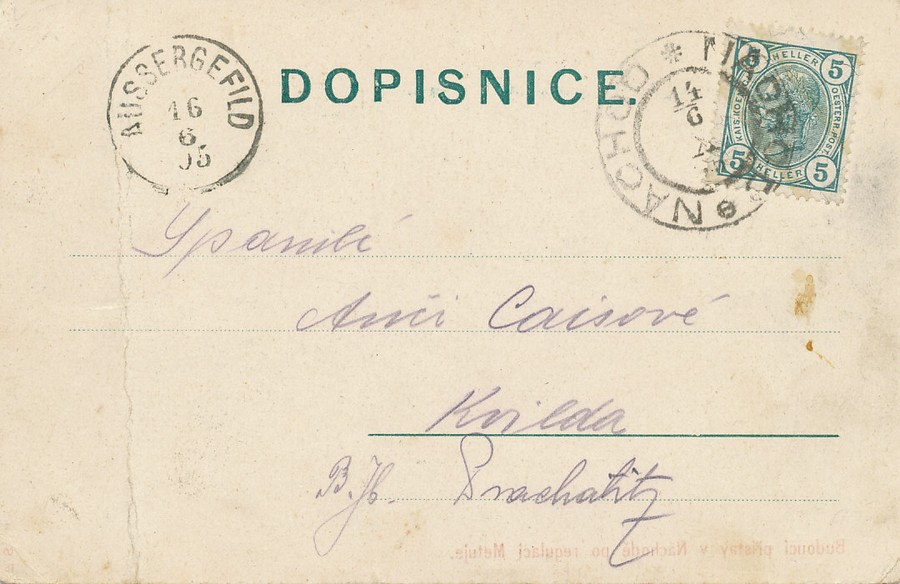 AUSSERGEFILD
16
6
05
DOPISNICE.
NÁCHOD * NÁCHOD
14
6
5 HELLER 5
KAIS.KOE. OESTERR.POST.
5 HELLER 5
Spanilé
Anči Caisové
Kvilda
B.Jh. Prachatitz
Budoucí přístav v Náchodě po regulaci Metuje.